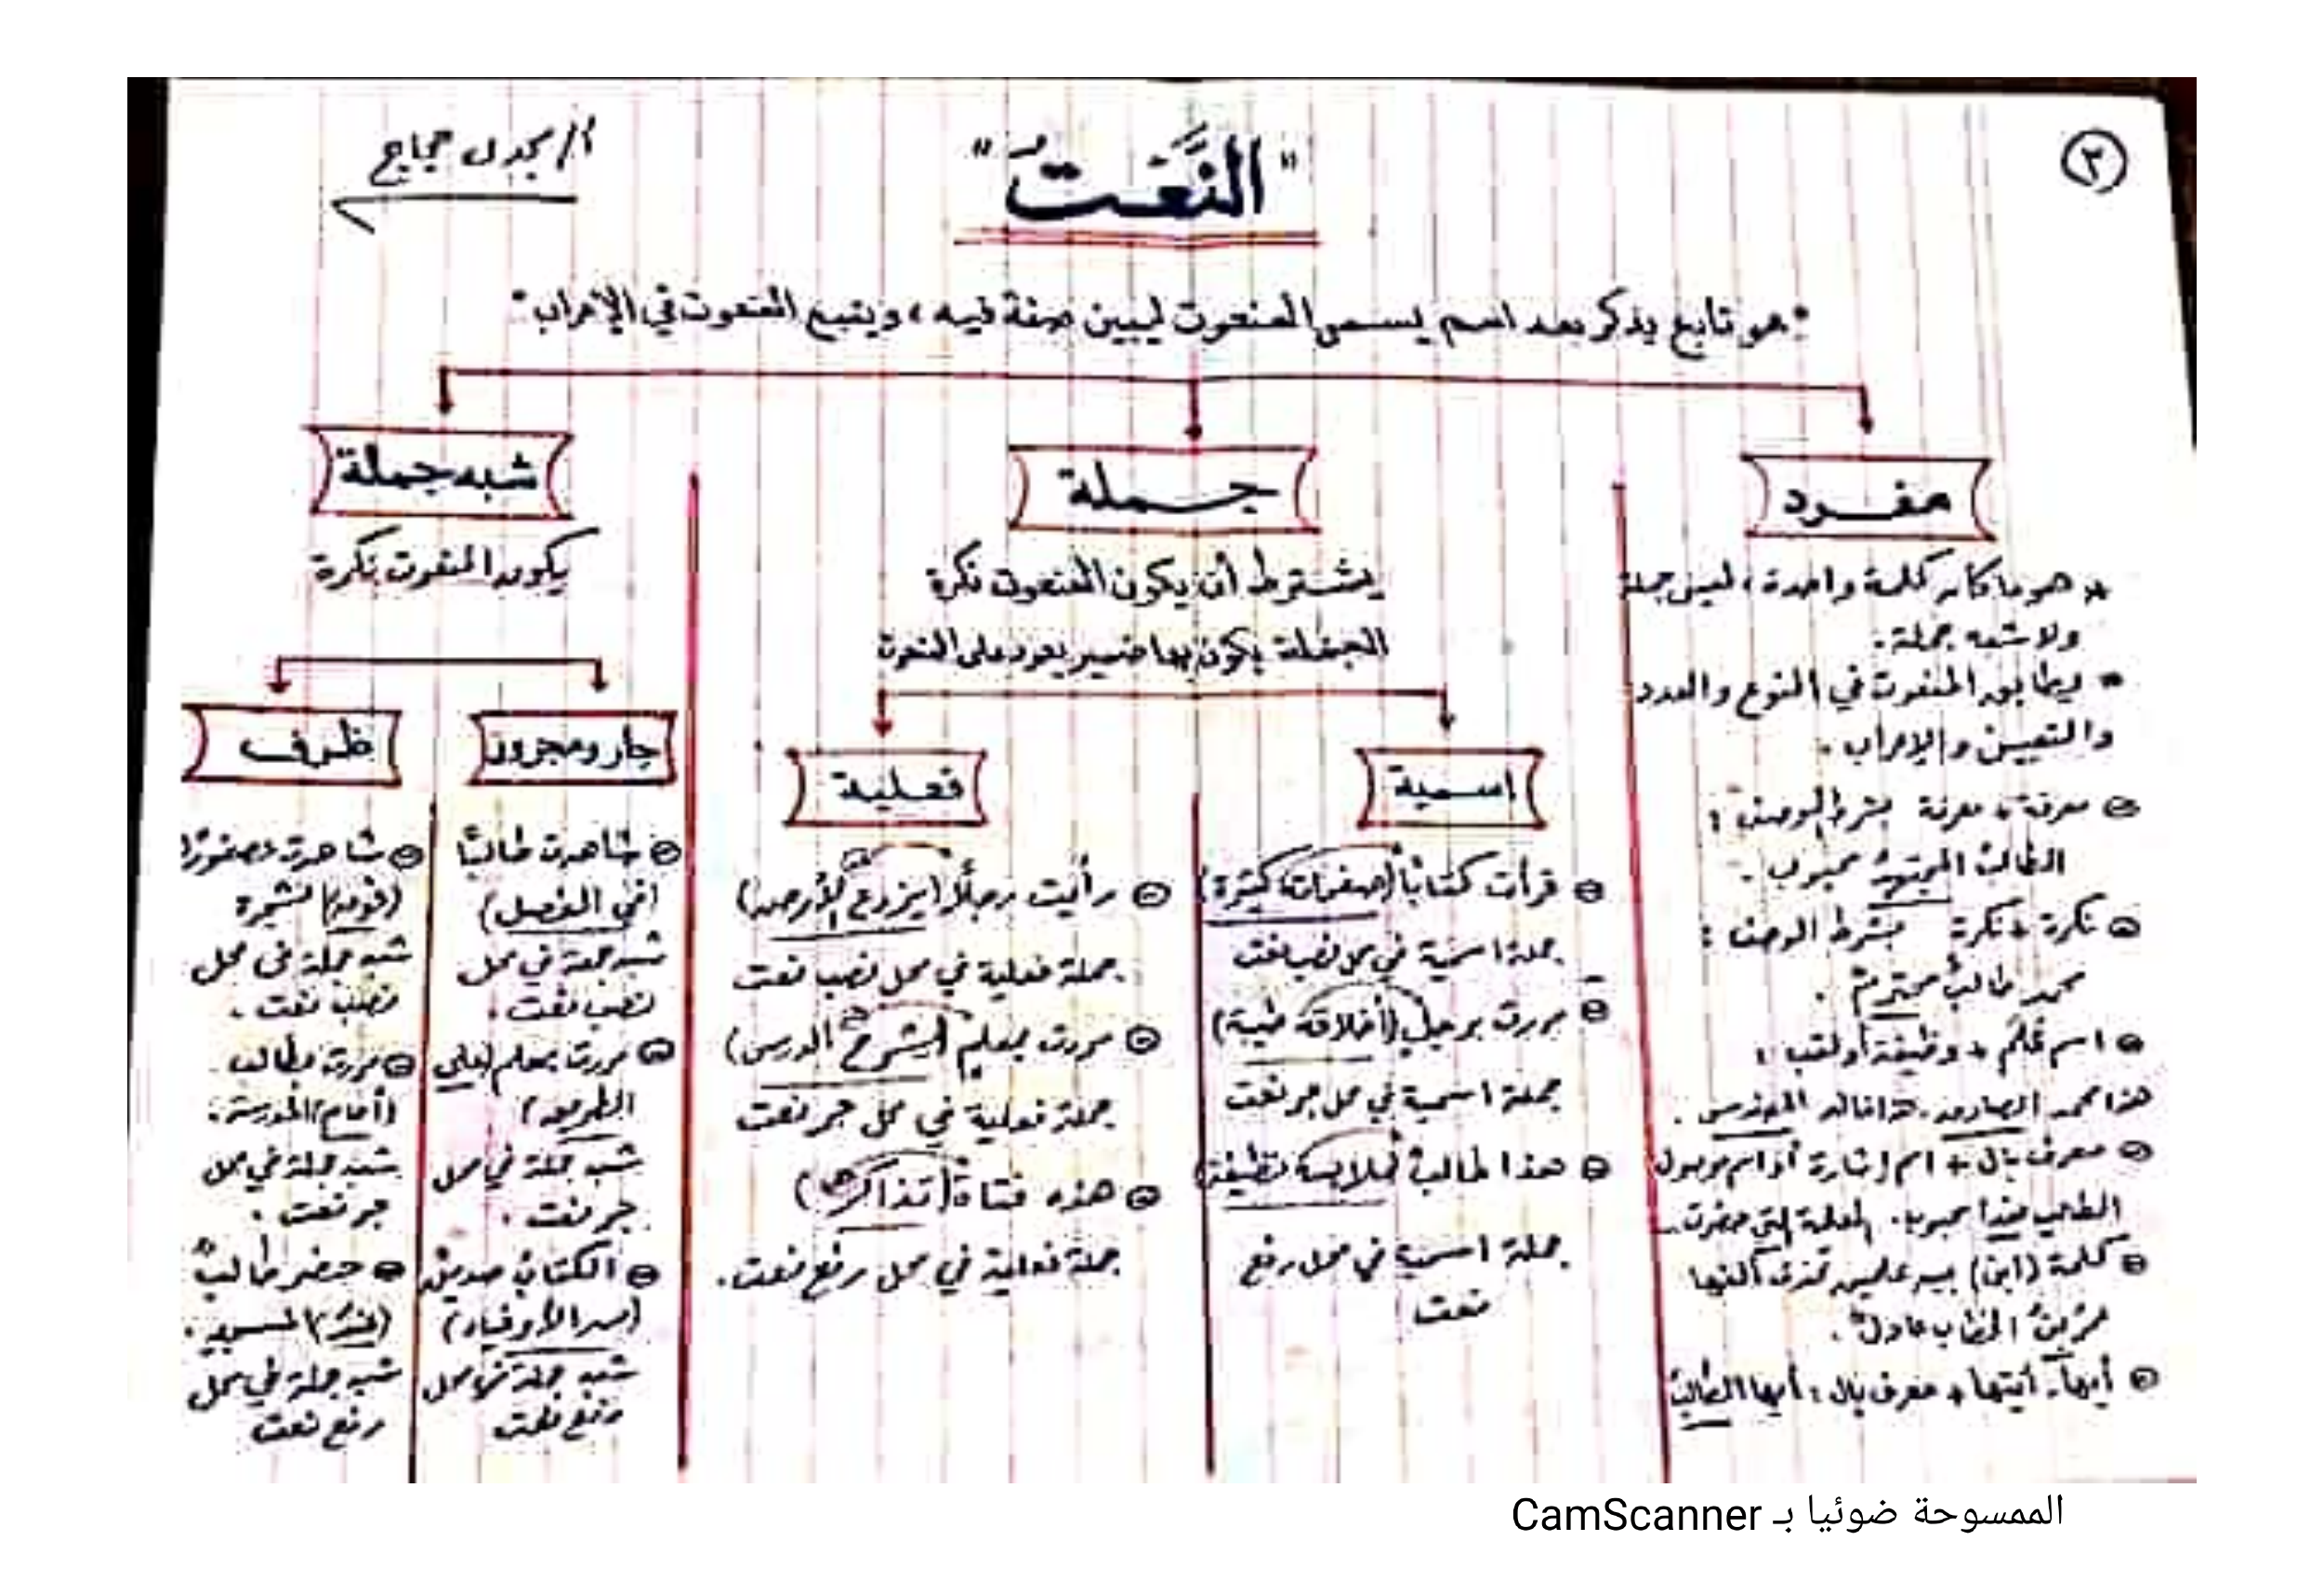 ٢
"النَّعَتُ"
أ/ مجدى حجاج
"هو تابع يذكر بعد اسم يسمى المنعوت ليبين صفة فيه، ويتبع المنعوت في الإعراب"
مفرد
* هو ما كان كلمة واحدة، ليس جملة
ولا شبه جملة.
* ويطابق المنعوت في النوع والعدد
والتعيين والإعراب.
معرفة + معرفة بشرط الوصف:
الطالبُ المجتهدُ محبوب.
نكرة + نكرة بشرط الوصف:
محمد طالبٌ محترمٌ.
اسم عَلَم + وظيفة أو لقب:
هذا محمد الصادق. هذا خالد المهندس.
معرف بال + اسم إشارة أو اسم موصول
الطالب هذا محبوب. المعلمة التي حضرت.
كلمة (ابن) بين علمين تحذف ألفها
عمر بنُ الخطاب عادلٌ.
أيها - أيتها + معرف بال: أيها الطالبُ
جملة
يشترط أن يكون المنعوت نكرة
الجملة يكون بها ضمير يعود على المنعوت
اسمية
قرأت كتابًا (صفحاته كثيرة)
جملة اسمية في محل نصب نعت
مررت برجلٍ (أخلاقه طيبة)
جملة اسمية في محل جر نعت
هذا طالبٌ (ملابسه نظيفة)
جملة اسمية في محل رفع
نعت
فعلية
رأيت رجلًا (يزرع الأرض)
جملة فعلية في محل نصب نعت
مررت بمعلمٍ (يشرح الدرس)
جملة فعلية في محل جر نعت
هذه فتاةٌ (تذاكر)
جملة فعلية في محل رفع نعت.
شبه جملة
يكون المنعوت نكرة
جار ومجرور
شاهدت طالبًا
(في الفصل)
شبه جملة في محل
نصب نعت.
مررت بمعلم (على
الطريق)
شبه جملة في محل
جر نعت.
الكتاب صديق
(من الأوفياء)
شبه جملة في محل
رفع نعت
ظرف
شاهدت عصفورًا
(فوق) الشجرة
شبه جملة في محل
نصب نعت.
مررت بطالب
(أمام) المدرسة.
شبه جملة في محل
جر نعت.
حضر طالبٌ
(عند) المسجد.
شبه جملة في محل
رفع نعت
الممسوحة ضوئيا بـ CamScanner